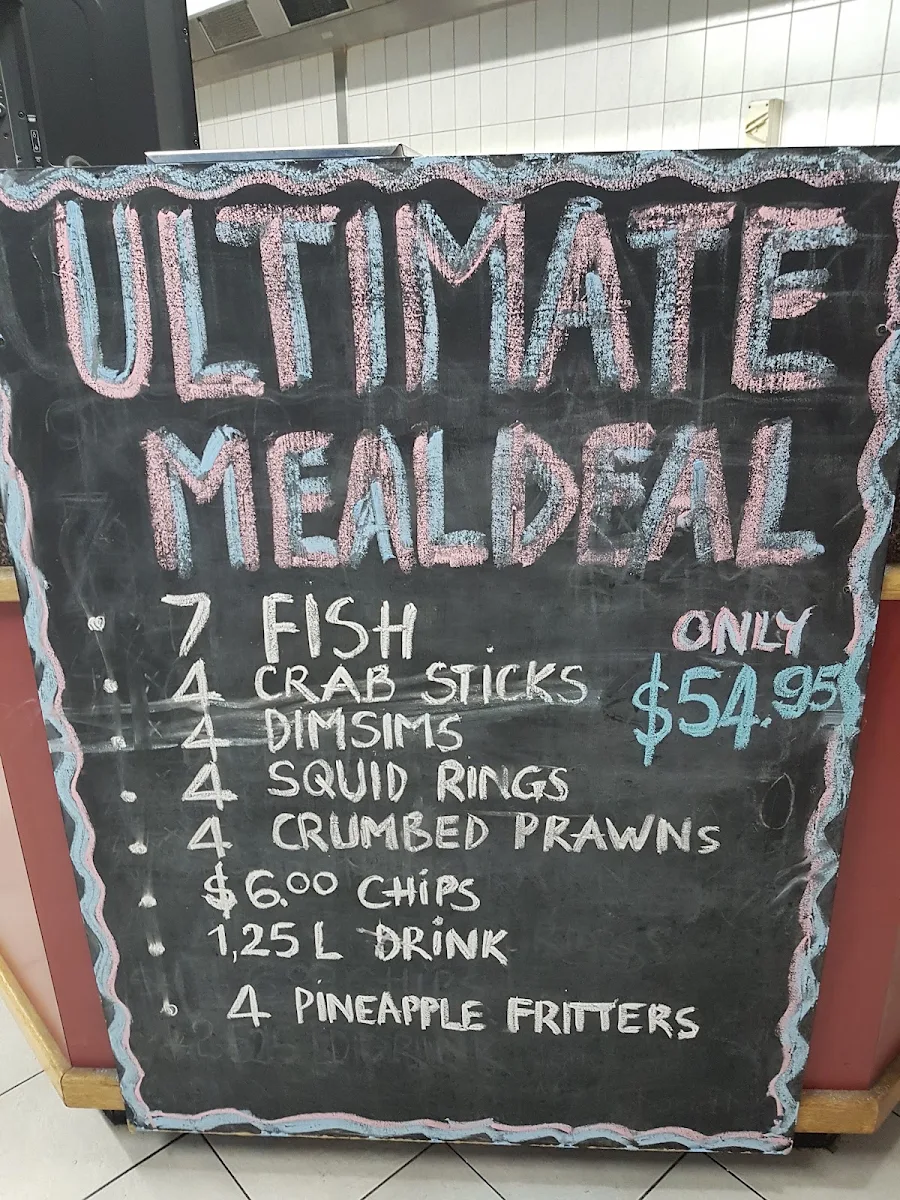 ULTIMATE
MEALDEAL
7 FISH
ONLY
4 CRAB STICKS
$54.95
4 DIMSIMS
4 SQUID RINGS
4 CRUMBED PRAWNS
$6.00 CHiPS
1,25 L DRiNK
4 PINEAPPLE FRITTERS